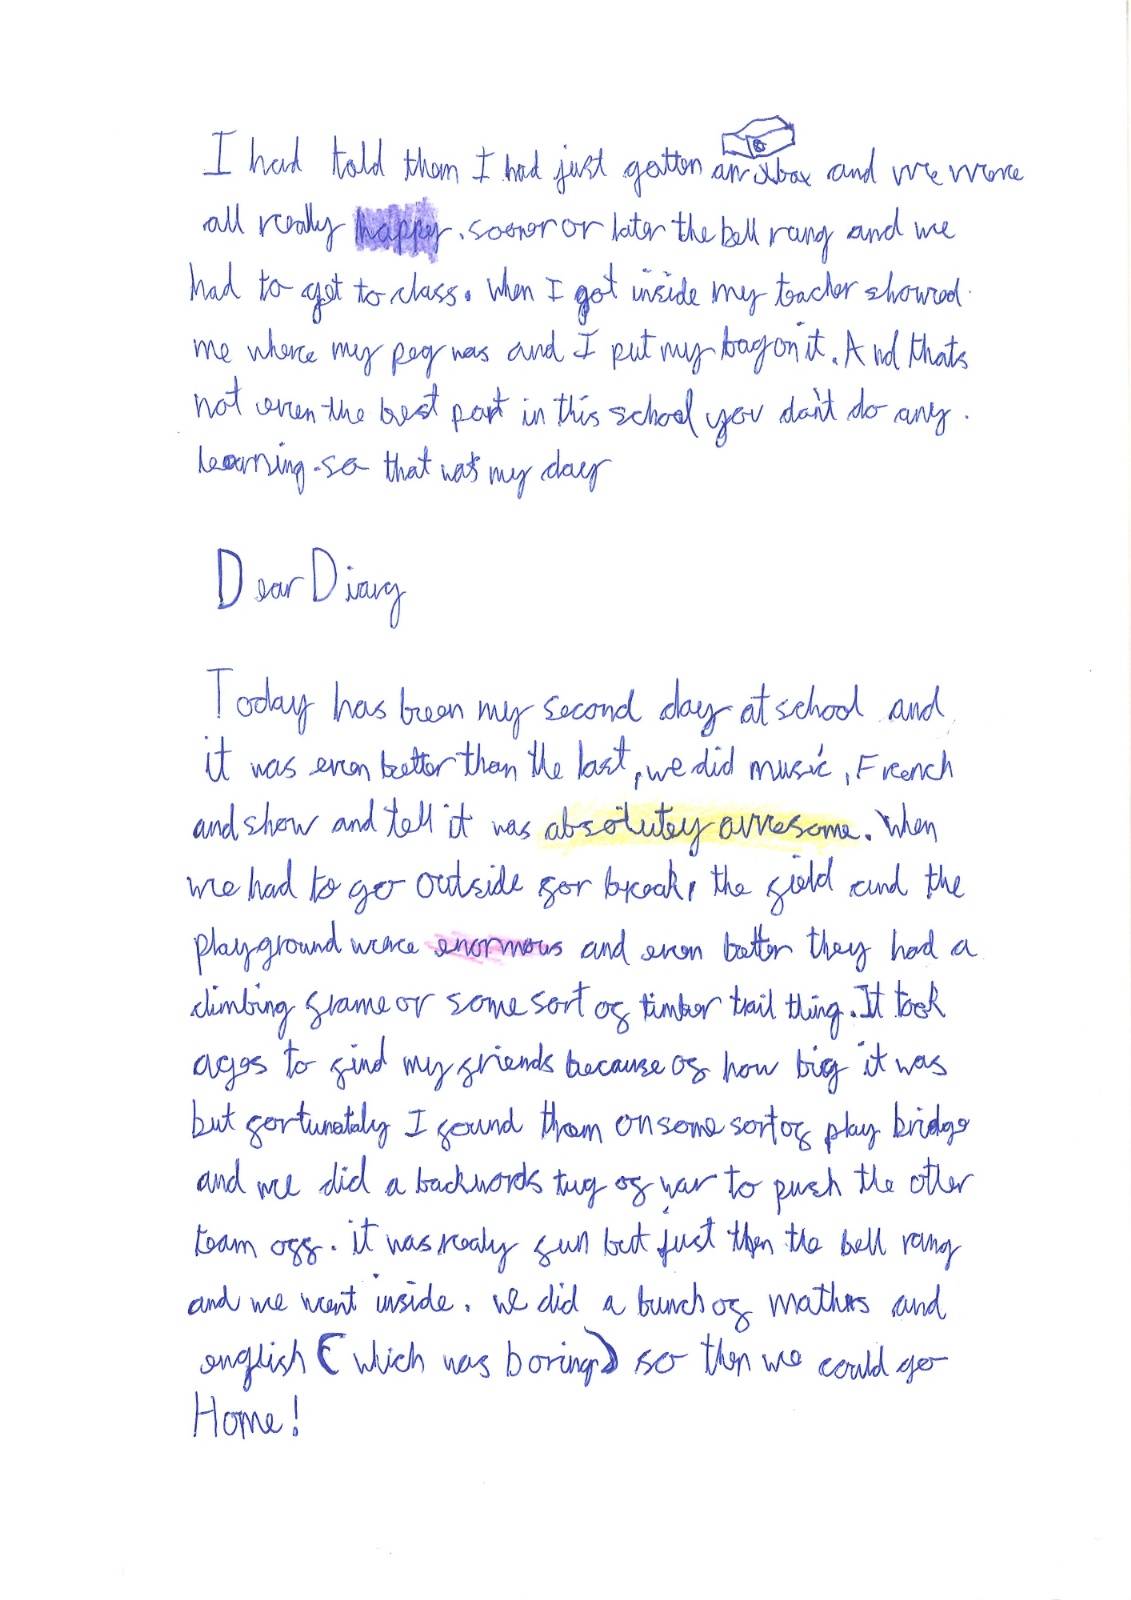 I had told them I had just gotten an xbox and we were
all really happy. sooner or later the bell rang and we
had to get to class. When I got inside my teacher showed
me where my peg was and I put my bag on it. And thats
not even the best part in this school you don't do any.
learning. so that was my day
Dear Diary
Today has been my second day at school and
it was even better than the last, we did music, French
and show and tell it was absolutey awesome. When
we had to go outside for break, the field and the
playground were enormous and even better they had a
climbing frame or some sort of timber trail thing. It took
ages to find my friends because of how big it was
but fortunately I found them on some sort of play bridge
and we did a backwords tug of war to push the other
team off. it was realy fun but just then the bell rang
and we went inside. we did a bunch of maths and
english (which was boring) so then we could go
Home!